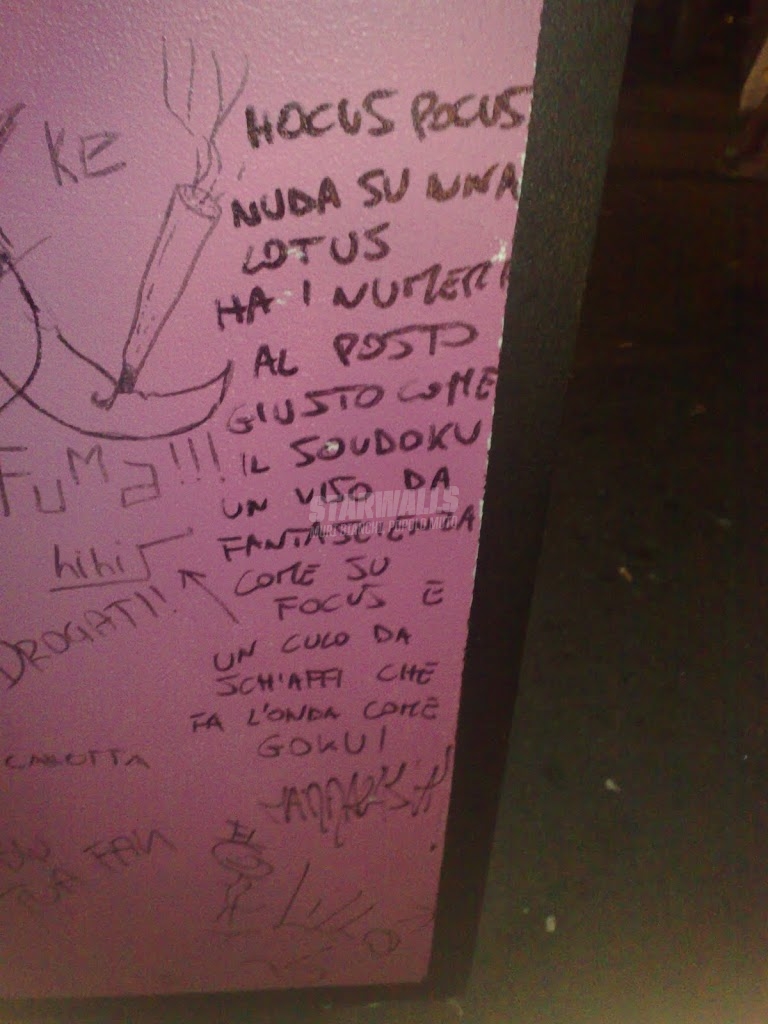 KE
HOCUS POCUS
NUDA SU UNA
LOTUS
HA I NUMERI
AL POSTO
GIUSTO COME
IL SOUDOKU
UN VISO DA
FANTASCIENZA
COME SU
FOCUS E
UN CULO DA
SCHIAFFI CHE
FA L'ONDA COME
GOKU!
FUMA!!!
hihi
DROGATI!
STARWALLS
MURI BIANCHI, POPOLO MUTO
TUA FAN